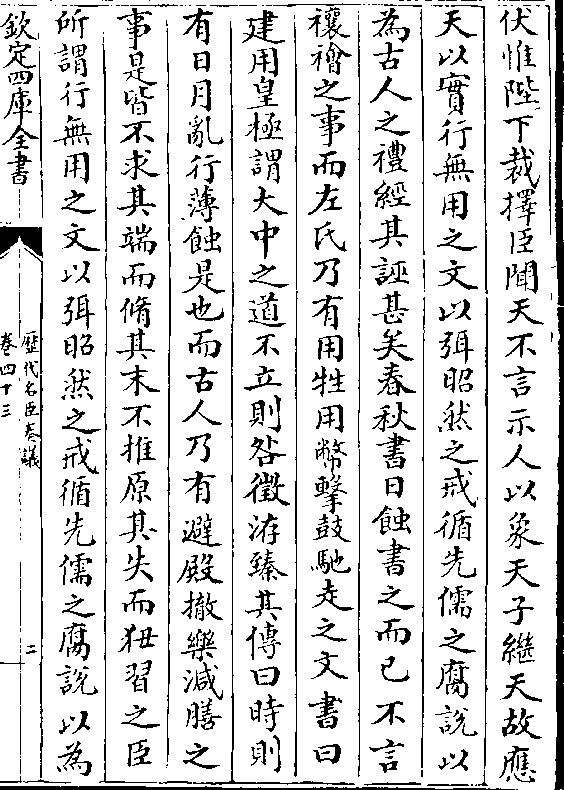 伏惟陛下裁擇臣聞天不言示人以象天子繼天故應
天以實行無用之文以弭昭然之戒循先儒之腐說以
為古人之禮經其誣甚矣春秋書日蝕書之而已不言
禳禬之事而左氏乃有用牲用幣擊鼓馳走之文書曰
建用皇極謂大中之道不立則咎徵洊臻其傳曰時則
有日月亂行薄蝕是也而古人乃有避殿撤樂減膳之
事是皆不求其端而脩其末不推原其失而狃習之臣
所謂行無用之文以弭昭然之戒循先儒之腐說以為
欽定四庫全書
歷代名臣奏議
卷四十三
二